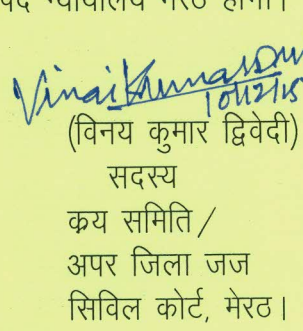 न्यायालय मेरठ होगा।
Vinai Kumar
10/12/15
(विनय कुमार द्विवेदी)
सदस्य
क्रय समिति/
अपर जिला जज
सिविल कोर्ट, मेरठ।